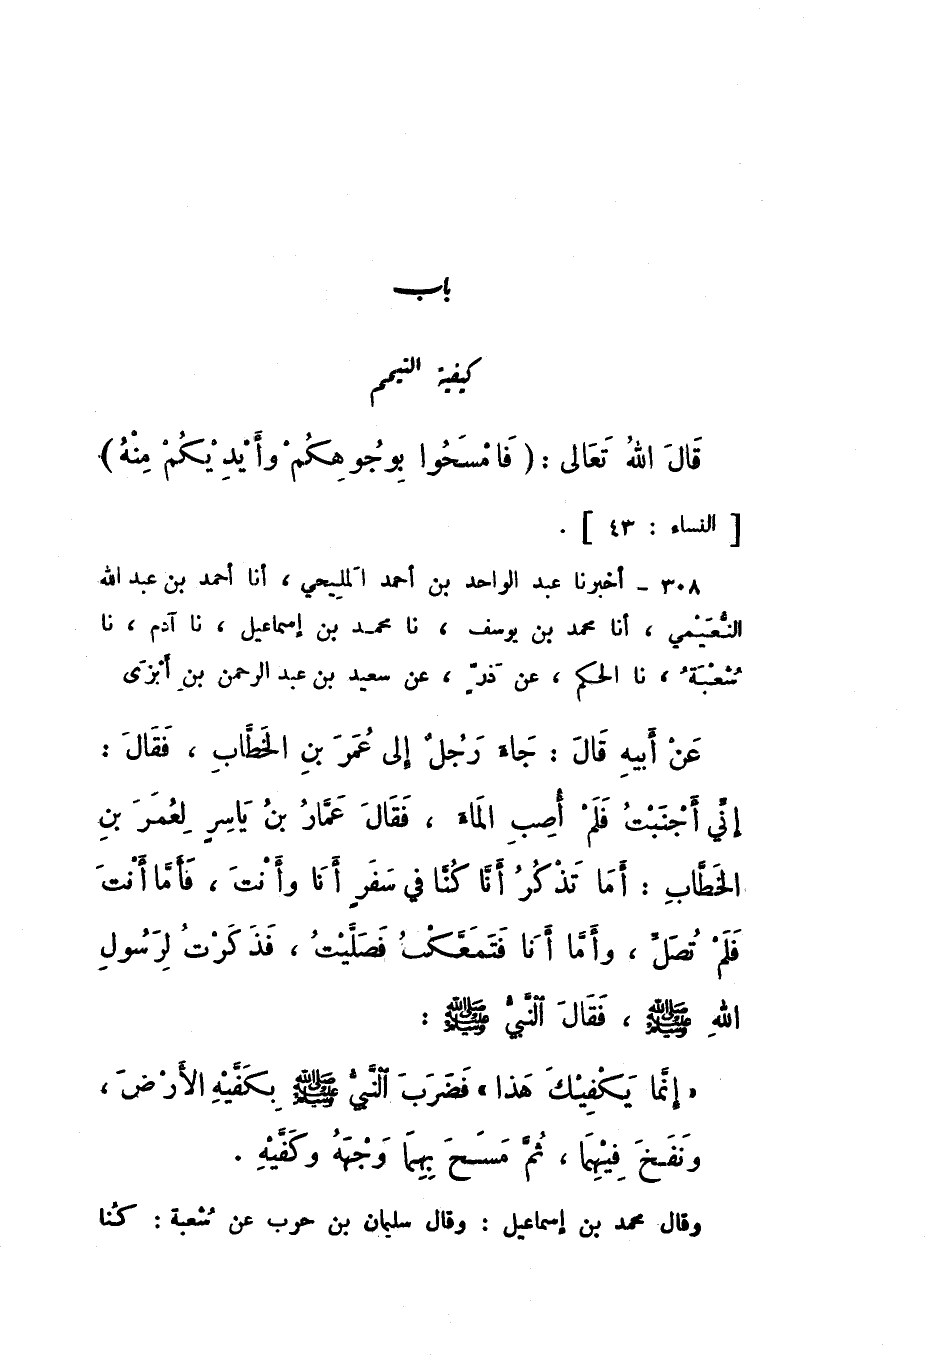 باب
كيفية التيمم
قَالَ اللهُ تَعَالى : ( فَامْسَحُوا بِوجُوهِكُمْ وأَيْدِيْكُمْ مِنْهُ )
[ النساء : ٤٣ ] .
٣٠٨ ـ أخبرنا عبد الواحد بن أحمد المَلِيحي ، أنا أحمد بن عبد الله
النُّعَيْمي ، أنا محمد بن يوسف ، نا محمد بن إسماعيل ، نا آدم ، نا
شُعْبَةُ ، نا الحكم ، عن ذَرٍّ ، عن سعيد بن عبد الرحمن بنِ أبْزَى
عَنْ أَبيهِ قَالَ : جَاءَ رَجُلٌ إلى عُمَرَ بنِ الخَطَّابِ ، فَقَالَ :
إنِّي أَجْنَبْتُ فَلَمْ أُصِبِ المَاءَ ، فَقَالَ عَمَّارُ بنُ يَاسِرٍ لِعُمَرَ بنِ
الخَطَّابِ : أَمَا تَذْكُرُ أَنَّا كُنَّا في سَفَرٍ أَنَا وأَنْتَ ، فَأَمَّا أَنْتَ
فَلَمْ تُصَلِّ ، وأَمَّا أَنَا فَتَمَعَّكْتُ فَصَلَّيْتُ ، فَذَكَرْتُ لِرَسُولِ
اللهِ ﷺ ، فَقَالَ النَّبيُّ ﷺ :
« إنَّمَا يَكْفِيْكَ هَذا » فَضَرَبَ النَّبيُّ ﷺ بِكَفَّيْهِ الأَرْضَ ،
ونَفَخَ فِيْهِمَا ، ثُمَّ مَسَحَ بِهِمَا وَجْهَهُ وكَفَّيْهِ .
وقال محمد بن إسماعيل : وقال سليمان بن حرب عن شُعبة : كُنا